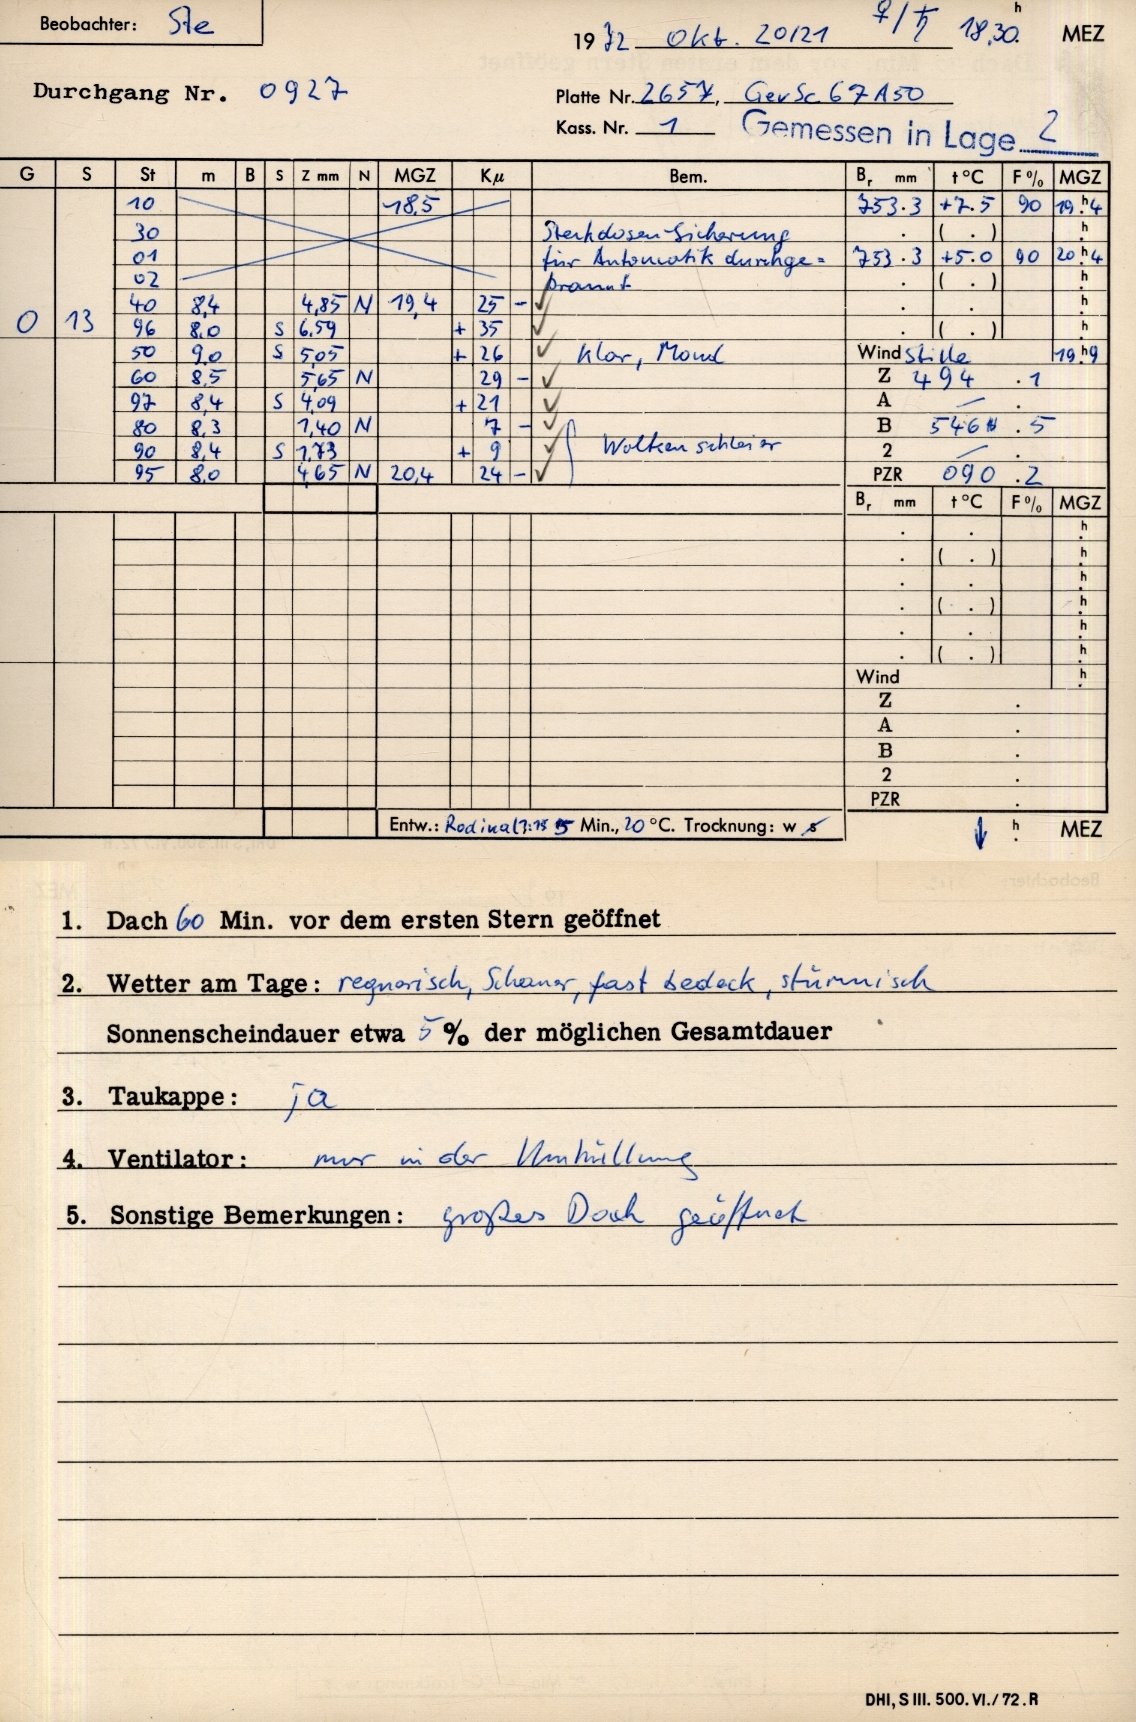 Beobachter: Ste
1972 Okt. 20/21 ♀/♄ 18.30 h MEZ
Durchgang Nr. 0927
Platte Nr. 2657, GevSc. 67A50
Kass. Nr. 1 Gemessen in Lage 2
G S St m B S Z mm N MGZ Kμ Bem. Br mm t °C F % MGZ
10 18,5 753.3 +7.5 90 19.h4
30 Steckdosen-Sicherung . ( . ) .h
01 für Automatik durchge= 753.3 +5.0 90 20.h4
02 brannt . ( . ) .h
40 8,4 4,85 N 19,4 25 - ✓ . . .h
0 13 96 8,0 S 6,59 + 35 ✓ . ( . ) .h
50 9,0 S 5,05 + 26 ✓ klar, Mond Wind Stille 19.h9
60 8,5 5,65 N 29 - ✓ Z 494.1
97 8,4 S 4,09 + 21 ✓ A – .
80 8,3 1,40 N 7 - ✓ B 546.5
90 8,4 S 1,73 + 9 ✓ Wolkenschleier 2 – .
95 8,0 4,65 N 20,4 24 - ✓ PZR 090.2
Br mm t °C F % MGZ
. . .h
. ( . ) .h
. . .h
. ( . ) .h
. . .h
. ( . ) .h
Wind .h
Z .
A .
B .
2 .
PZR .
Entw.: Rodinal 1:15 5 Min., 20 °C. Trocknung: w s ↓ .h MEZ
1. Dach 60 Min. vor dem ersten Stern geöffnet
2. Wetter am Tage: regnerisch, Schauer, fast bedeck, stürmisch
Sonnenscheindauer etwa 5 % der möglichen Gesamtdauer
3. Taukappe: ja
4. Ventilator: nur in der Umhüllung
5. Sonstige Bemerkungen: großes Dach geöffnet
DHI, S III. 500. VI./72. R